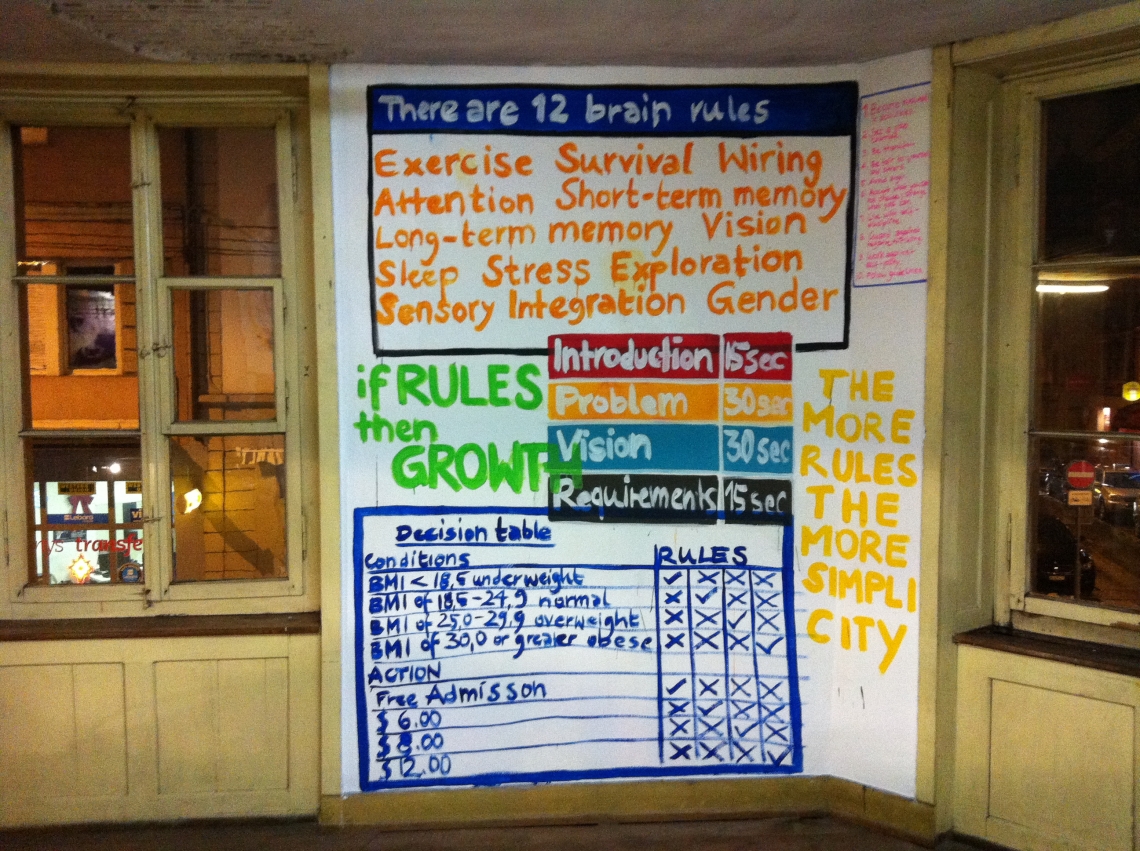 There are 12 brain rules
Exercise Survival Wiring
Attention Short-term memory
Long-term memory Vision
Sleep Stress Exploration
Sensory Integration Gender
if RULES
then
GROWTH
Introduction 15 sec
Problem 30 sec
Vision 30 sec
Requirements 15 sec
THE
MORE
RULES
THE
MORE
SIMPLI
CITY
Decision table
Conditions RULES
BMI < 18,5 underweight ✓ X X X
BMI of 18,5-24,9 normal X ✓ X X
BMI of 25,0-29,9 overweight X X ✓ X
BMI of 30,0 or greater obese X X X ✓
ACTION
Free Admisson ✓ X X X
$ 6.00 X ✓ X X
$ 8.00 X X ✓ X
$ 12.00 X X X ✓